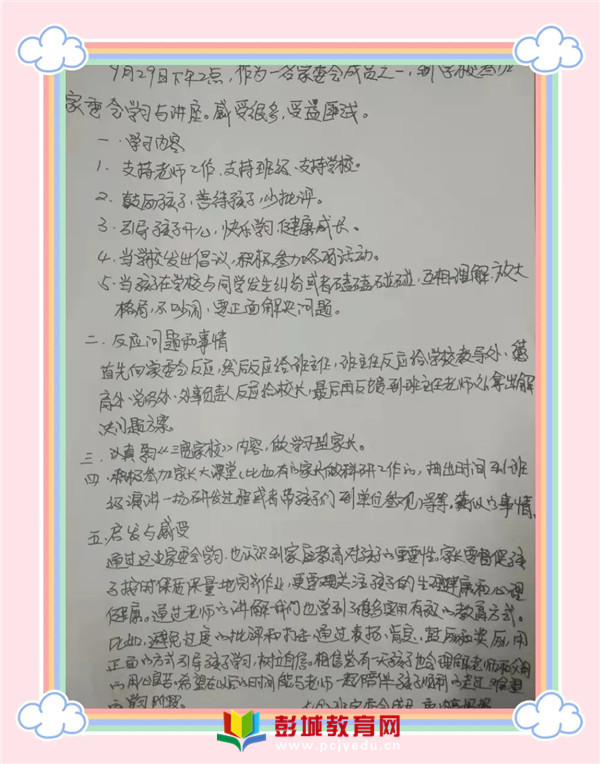 9月29日下午2点，作为一名家委会成员之一，到学校参加
家委会学习与讲座。感受很多，受益匪浅。
一、学习内容
1、支持老师工作、支持班级、支持学校。
2、鼓励孩子，善待孩子，少批评。
3、引导孩子开心，快乐学习，健康成长。
4、当学校发出倡议，积极参加各项活动。
5、当孩子在学校与同学发生纠纷或者磕磕碰碰，互相理解，放大
格局，不吵闹，要正面解决问题。
二、反应问题的事情
首先向家委会反应，然后反应给班主任，班主任反应给学校教导处、德
育处、总务处，处负责人反应给校长，最后再反馈到班主任老师处拿出解
决问题方案。
三、认真到《三宽家校》内容，做学习型家长。
四、积极参加家长大课堂，比如有的家长做科研工作的，抽出时间到班
级演讲一场研发过程或者带孩子们到单位参观等等，类似的事情。
五、启发与感受
通过这次家委会学习，也认识到家庭教育对孩子的重要性。家长要督促孩
子按时保质保量地完成作业，更要关注孩子的生理健康和心理
健康。通过老师的讲解我们也学到很多实用有效的教育方式。
比如，避免过度的批评和打击，通过表扬、肯定、鼓励和奖励，用
正面的方式引导孩子学习，树立自信。相信总有一天孩子也会理解老师和父母
的用心良苦。希望在以后的时间能与老师一起陪伴孩子顺利的走过
的学习阶段。
班家委会成员
彭城教育网
www.pcjyedu.cn